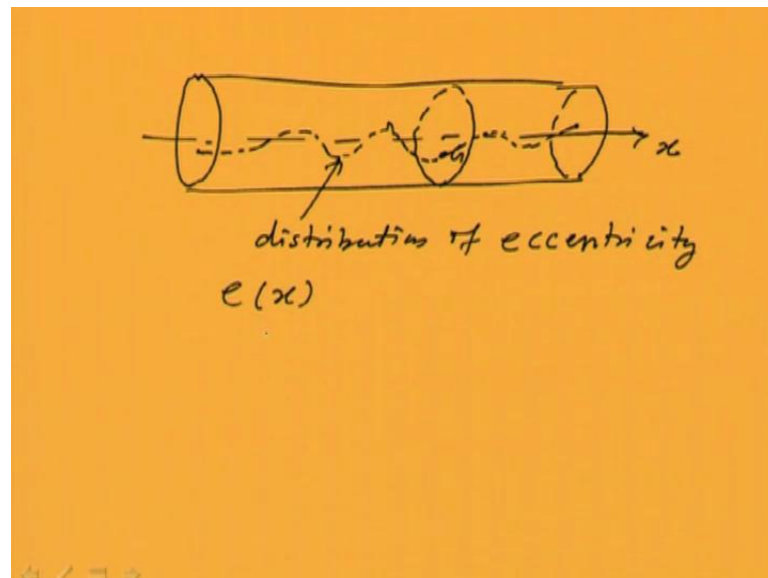 x
distribution of eccentricity
e(x)